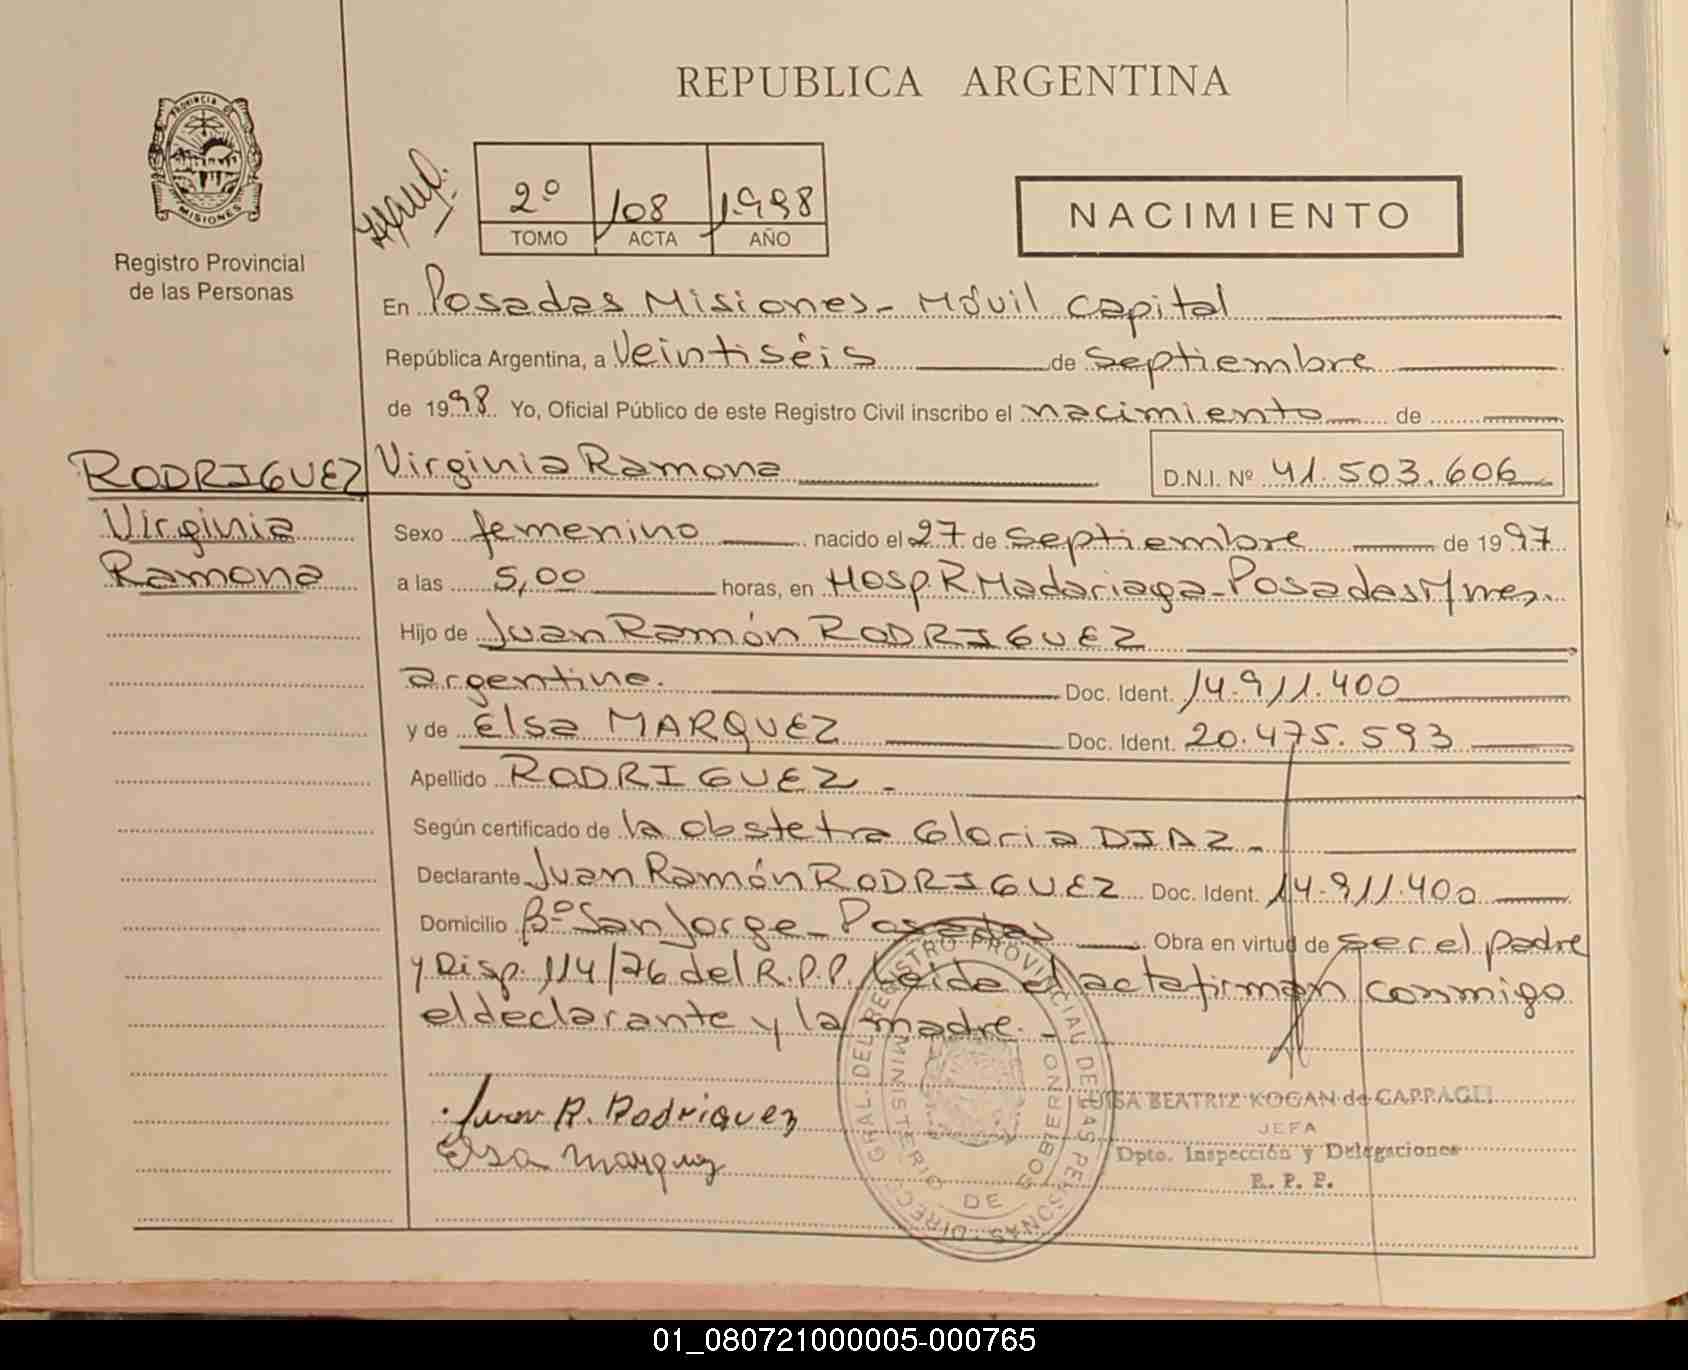 REPUBLICA ARGENTINA
PROVINCIA DE
MISIONES
Registro Provincial
de las Personas
2º /08 1.998
TOMO ACTA AÑO
NACIMIENTO
En Posadas Misiones - Móvil Capital
República Argentina, a Veintiséis de Septiembre
de 1998. Yo, Oficial Público de este Registro Civil inscribo el nacimiento de
RODRIGUEZ Virginia Ramona D.N.I. Nº 41.503.606
Virginia
Ramona
Sexo femenino nacido el 27 de Septiembre de 1997
a las 5,00 horas, en Hosp. R. Madariaga - Posadas Mnes.
Hijo de Juan Ramón RODRIGUEZ
argentino. Doc. Ident. 14.911.400
y de Elsa MARQUEZ Doc. Ident. 20.475.593
Apellido RODRIGUEZ -
Según certificado de la obstetra Gloria DIAZ -
Declarante Juan Ramón RODRIGUEZ Doc. Ident. 14.911.400
Domicilio Bº San Jorge - Posadas Obra en virtud de ser el padre
y Disp. 114/76 del R.P.P. Leida el acta firman conmigo
el declarante y la madre. -
Juan R. Rodriguez
Elsa Marquez
DIREC. GRAL. DEL REGISTRO PROVINCIAL DE LAS PERSONAS
MINISTERIO DE GOBIERNO
LUISA BEATRIZ KOGAN de CAPRAGLI
JEFA
Dpto. Inspección y Delegaciones
R. P. P.
01_080721000005-000765